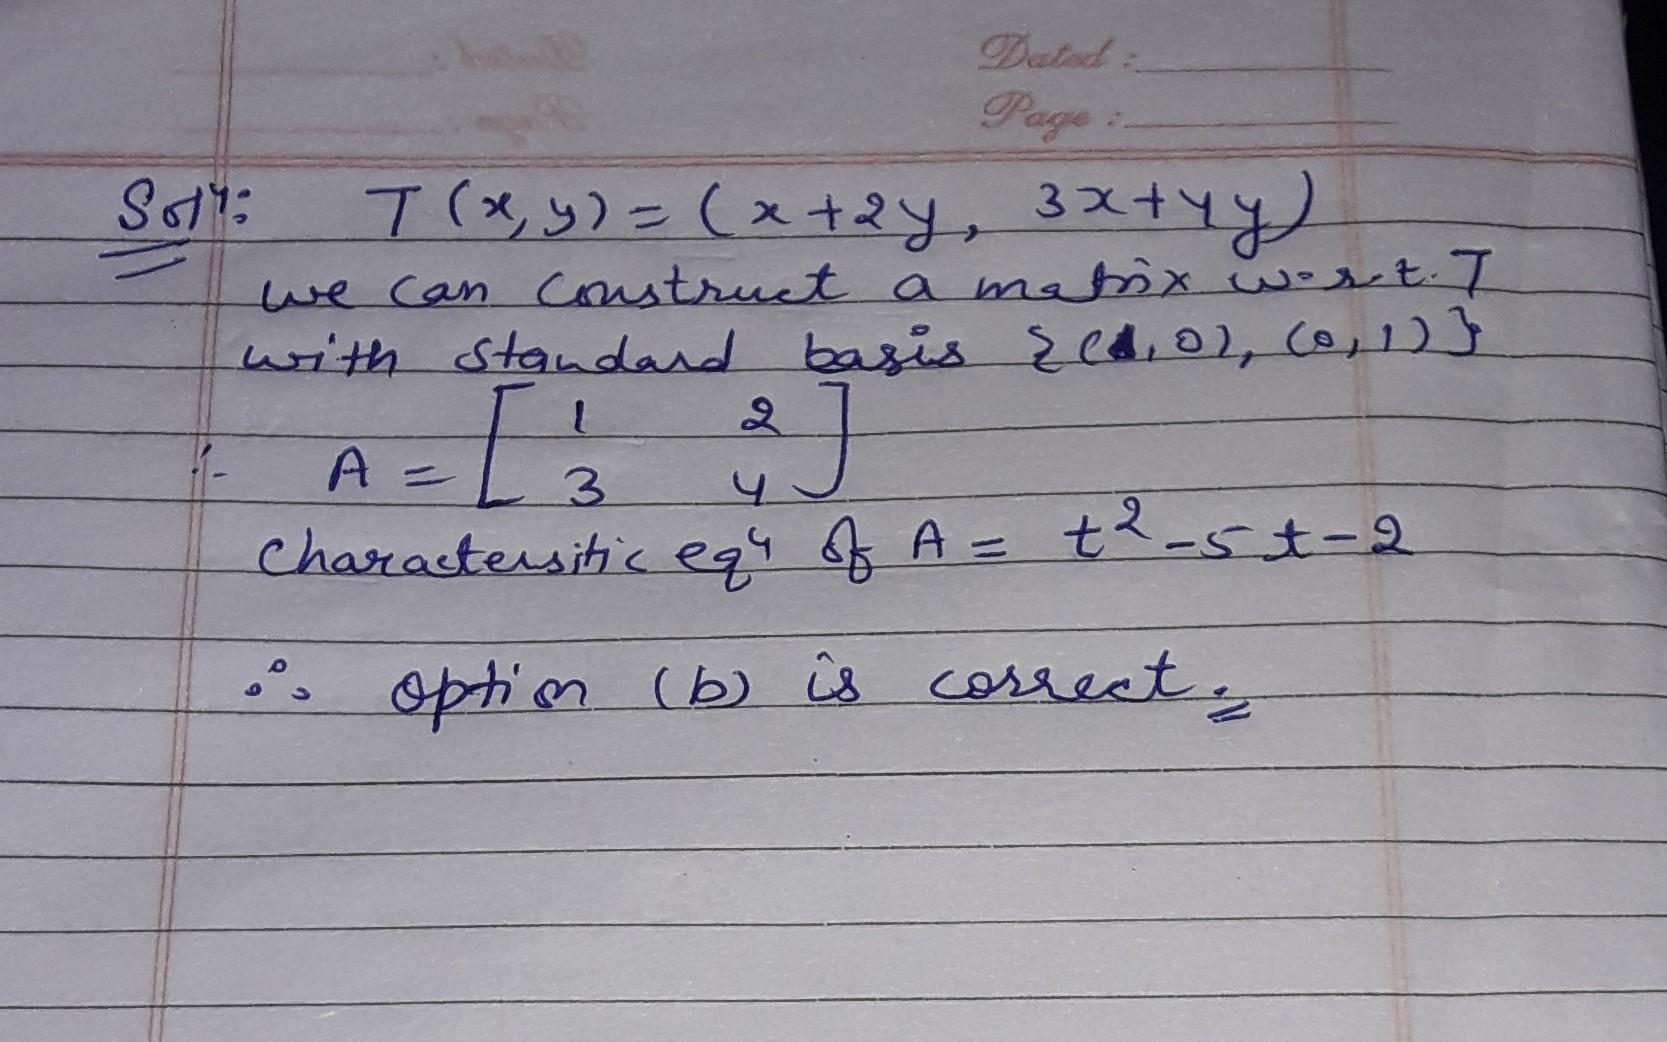 Dated :
Page :
Solⁿ: T(x,y) = (x+2y, 3x+4y)
we can construct a matrix w.r.t. T
with standard basis {(1,0), (0,1)}
∴ A = [ 1 2
3 4 ]
Charactersitic eqⁿ of A = t²-5t-2
∴ option (b) is correct.